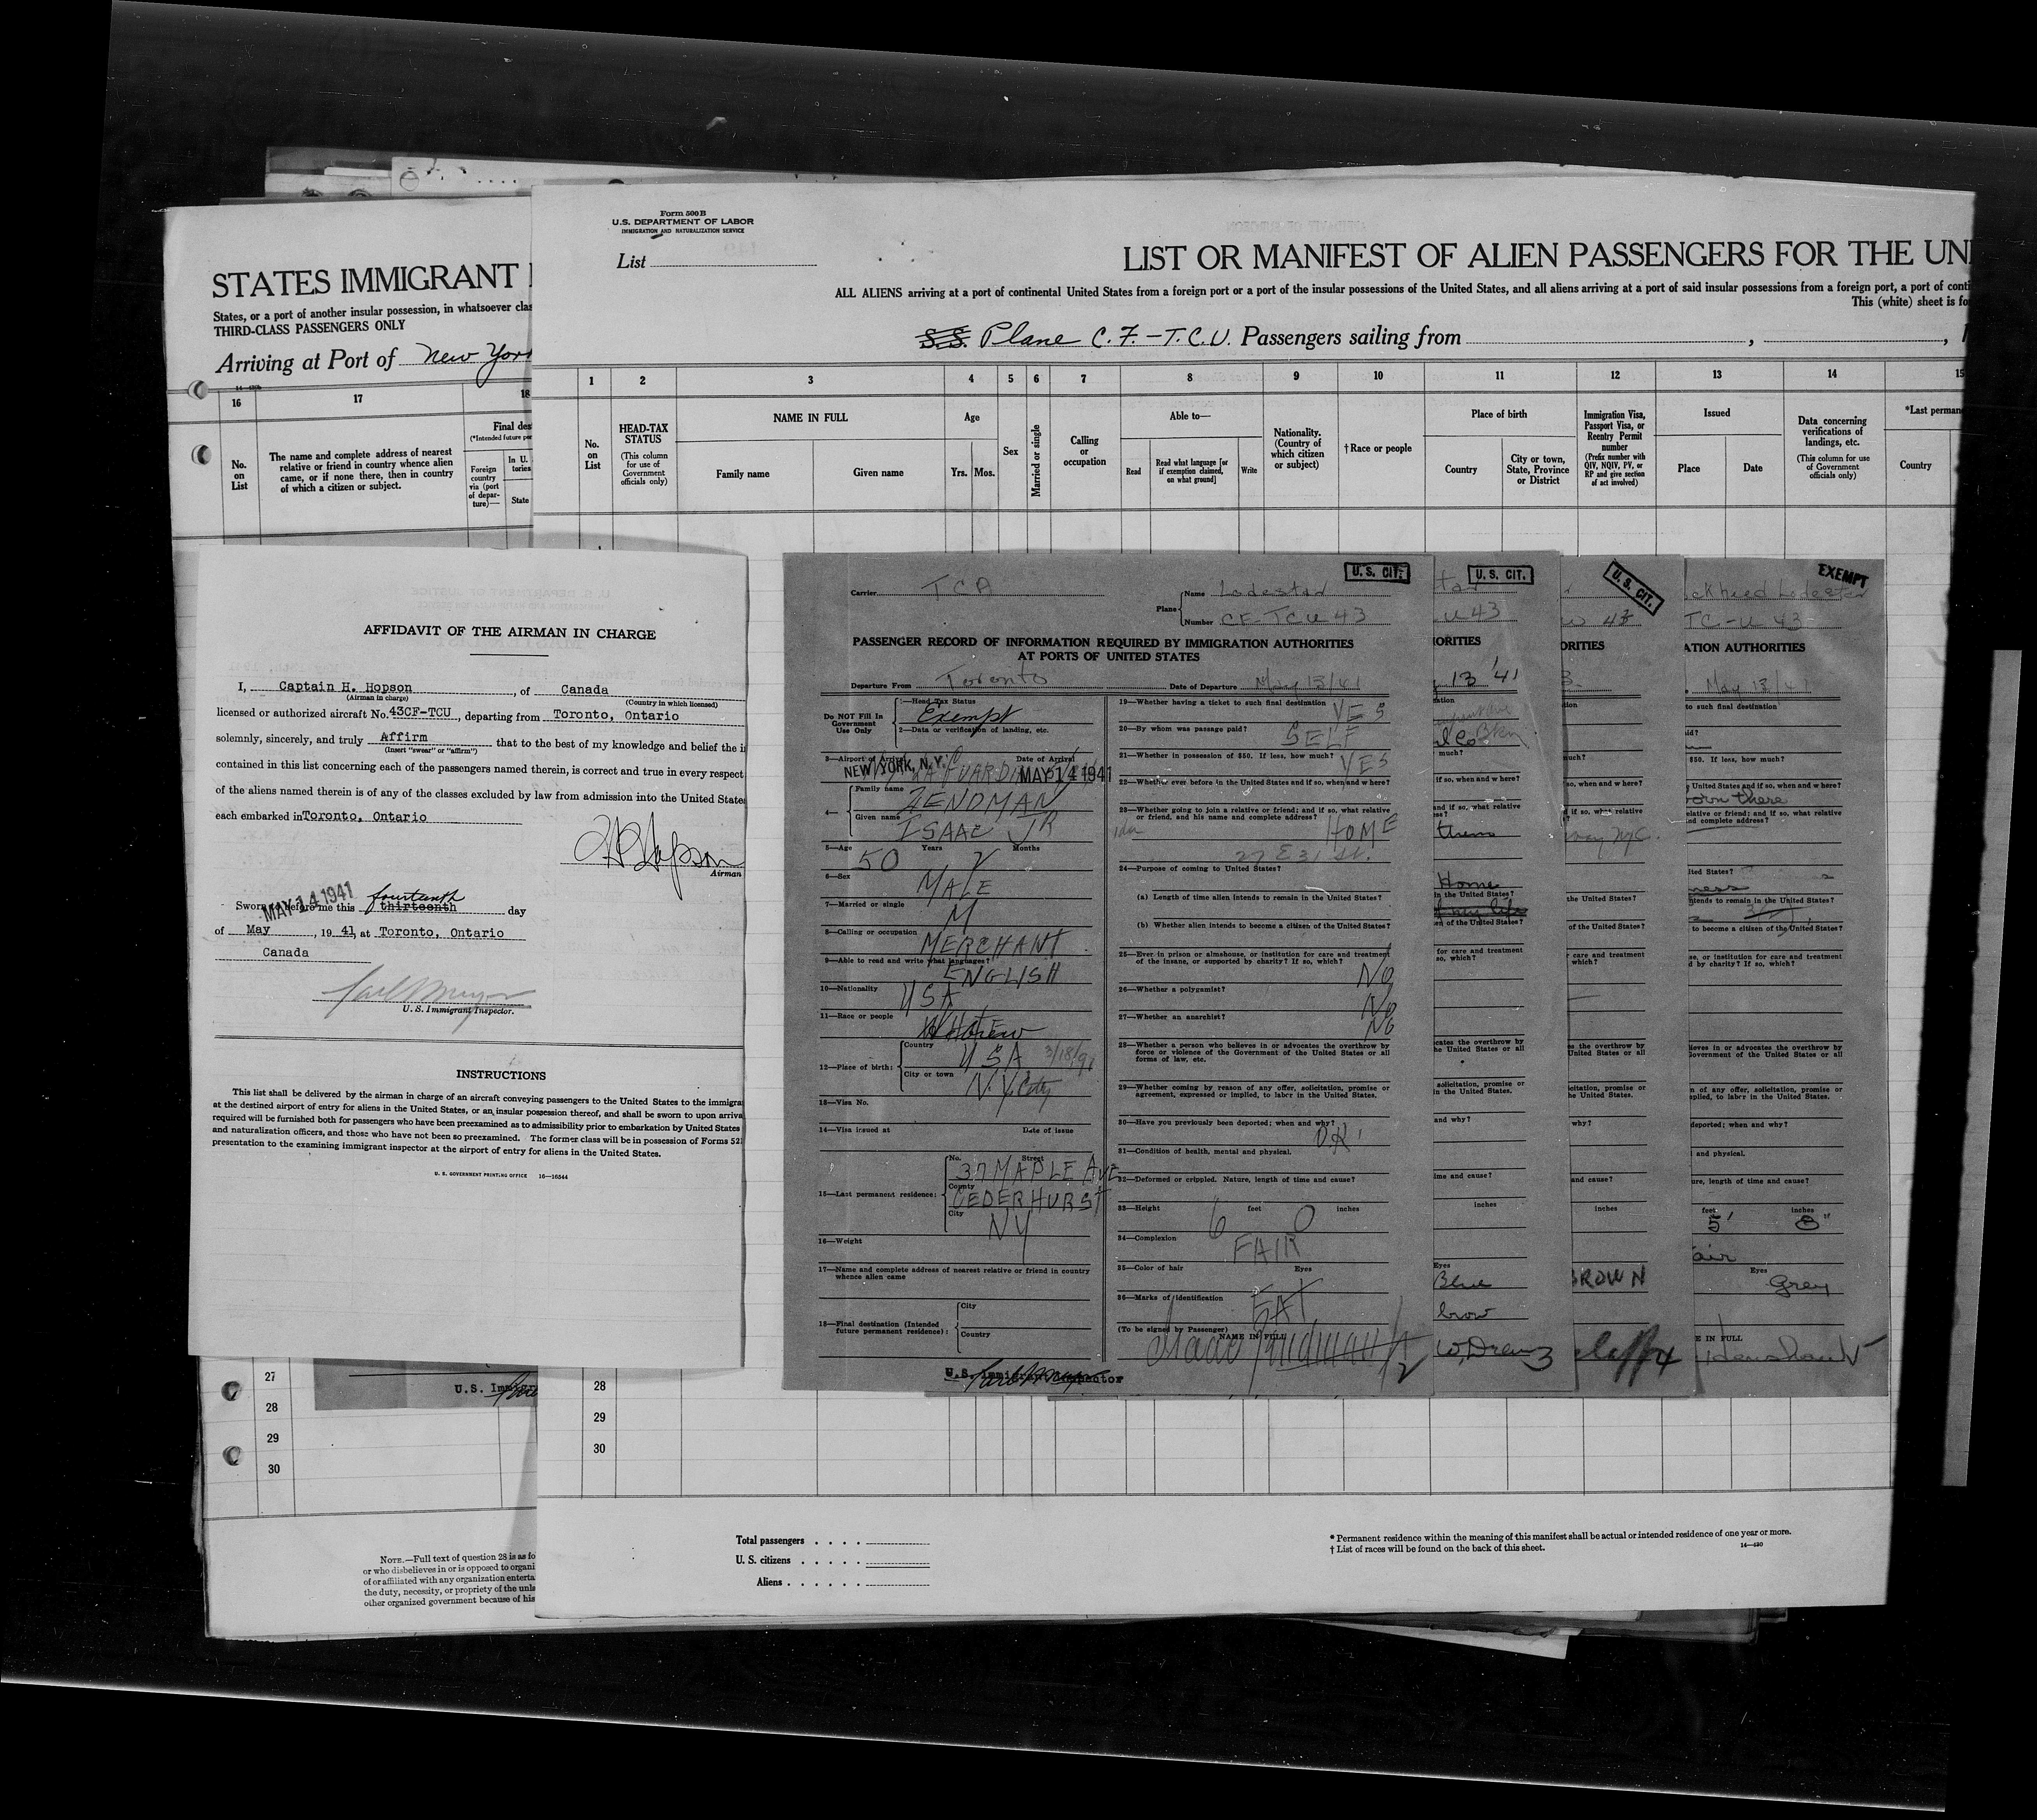 Form 500 B
U.S. DEPARTMENT OF LABOR
IMMIGRATION AND NATURALIZATION SERVICE
List
LIST OR MANIFEST OF ALIEN PASSENGERS FOR THE UNI
ALL ALIENS arriving at a port of continental United States from a foreign port or a port of the insular possessions of the United States, and all aliens arriving at a port of said insular possessions from a foreign port, a port of conti
This (white) sheet is fo
S.S. Plane C.F.-T.C.U. Passengers sailing from
1 2 3 4 5 6 7 8 9 10 11 12 13 14 15
No. on List
HEAD-TAX STATUS
(This column for use of Government officials only)
NAME IN FULL
Family name
Given name
Age
Yrs. Mos.
Sex
Married or single
Calling or occupation
Able to—
Read
Read what language [or if exemption claimed, on what ground]
Write
Nationality. (Country of which citizen or subject)
†Race or people
Place of birth
Country
City or town, State, Province or District
Immigration Visa, Passport Visa, or Reentry Permit number
(Prefix number with QIV, NQIV, PV, or RP and give section of act involved)
Issued
Place
Date
Data concerning verifications of landings, etc.
(This column for use of Government officials only)
*Last perman
Country
STATES IMMIGRANT
States, or a port of another insular possession, in whatsoever clas
THIRD-CLASS PASSENGERS ONLY
Arriving at Port of New York
16 17 18
No. on List
The name and complete address of nearest relative or friend in country whence alien came, or if none there, then in country of which a citizen or subject.
Final des
(*Intended future per
Foreign country via (port of departure)—
In U.
tories
State
AFFIDAVIT OF THE AIRMAN IN CHARGE
I, Captain H. Hopson, of Canada
(Airman in charge) (Country in which licensed)
licensed or authorized aircraft No. 43CF-TCU, departing from Toronto, Ontario
solemnly, sincerely, and truly Affirm that to the best of my knowledge and belief the i
(Insert "swear" or "affirm")
contained in this list concerning each of the passengers named therein, is correct and true in every respect
of the aliens named therein is of any of the classes excluded by law from admission into the United State
each embarked in Toronto, Ontario
H Hopson
Airman
MAY 14 1941
Sworn before me this thirteenth fourteenth day
of May, 19 41, at Toronto, Ontario
Canada
U. S. Immigrant Inspector.
INSTRUCTIONS
This list shall be delivered by the airman in charge of an aircraft conveying passengers to the United States to the immigra
at the destined airport of entry for aliens in the United States, or an insular possession thereof, and shall be sworn to upon arriva
required will be furnished both for passengers who have been preexamined as to admissibility prior to embarkation by United States
and naturalization officers, and those who have not been so preexamined. The former class will be in possession of Forms 52
presentation to the examining immigrant inspector at the airport of entry for aliens in the United States.
U. S. GOVERNMENT PRINTING OFFICE 16—16544
U. S. CIT.
Carrier TCA
Plane Name Lodestar
Number CF-TCU 43
PASSENGER RECORD OF INFORMATION REQUIRED BY IMMIGRATION AUTHORITIES
AT PORTS OF UNITED STATES
Departure From Toronto Date of Departure May 13/41
Do NOT Fill In Government Use Only
1—Head Tax Status
Exempt
2—Data or verification of landing, etc.
3—Airport of Arrival Date of Arrival
NEW YORK, N.Y. MAY 14 1941
4— Family name ZENDMAN
Given name ISAAC JR
5—Age 50 Years Months
6—Sex MALE
7—Married or single M
8—Calling or occupation MERCHANT
9—Able to read and write what languages? ENGLISH
10—Nationality USA
11—Race or people Hebrew
12—Place of birth: Country USA 3/18/91
City or town N.Y. City
13—Visa No.
14—Visa issued at Date of issue
15—Last permanent residence: No. Street 37 MAPLE AVE
County CEDERHURST
City NY
16—Weight
17—Name and complete address of nearest relative or friend in country whence alien came
18—Final destination (Intended future permanent residence): City
Country
19—Whether having a ticket to such final destination YES
20—By whom was passage paid? SELF
21—Whether in possession of $50. If less, how much? YES
22—Whether ever before in the United States and if so, when and where?
23—Whether going to join a relative or friend; and if so, what relative or friend, and his name and complete address? HOME
27 E 31 St.
24—Purpose of coming to United States?
(a) Length of time alien intends to remain in the United States?
(b) Whether alien intends to become a citizen of the United States?
25—Ever in prison or almshouse, or institution for care and treatment of the insane, or supported by charity? If so, which? NO
26—Whether a polygamist? No
27—Whether an anarchist? No
28—Whether a person who believes in or advocates the overthrow by force or violence of the Government of the United States or all forms of law, etc.
29—Whether coming by reason of any offer, solicitation, promise or agreement, expressed or implied, to labor in the United States.
30—Have you previously been deported; when and why?
31—Condition of health, mental and physical. O.K.
32—Deformed or crippled. Nature, length of time and cause?
33—Height 6 feet 0 inches
34—Complexion FAIR
35—Color of hair Eyes
36—Marks of identification
(To be signed by Passenger) NAME IN FULL
Isaac Zendman Jr
2
U.S. Immigrant Inspector
U. S. CIT.
U 43
ORITIES
13 '41
Home
inches
Eyes
Blue
brow
W. Drew 3
U. S. CIT.
43
ORITIES
inches
BROWN
4
EXEMPT
ockheed Lodestar
TC-U 43
ATION AUTHORITIES
May 13/41
to such final destination
$50. If less, how much?
United States and if so, when and where?
born there
feet 5' inches 8"
air
Eyes
Grey
E IN FULL
27
28
29
30
U.S. Immigr
28
29
30
NOTE.—Full text of question 28 is as fo
or who disbelieves in or is opposed to organi
of or affiliated with any organization enterta
the duty, necessity, or propriety of the unla
other organized government because of his
Total passengers
U. S. citizens
Aliens
* Permanent residence within the meaning of this manifest shall be actual or intended residence of one year or more.
† List of races will be found on the back of this sheet.
14—430